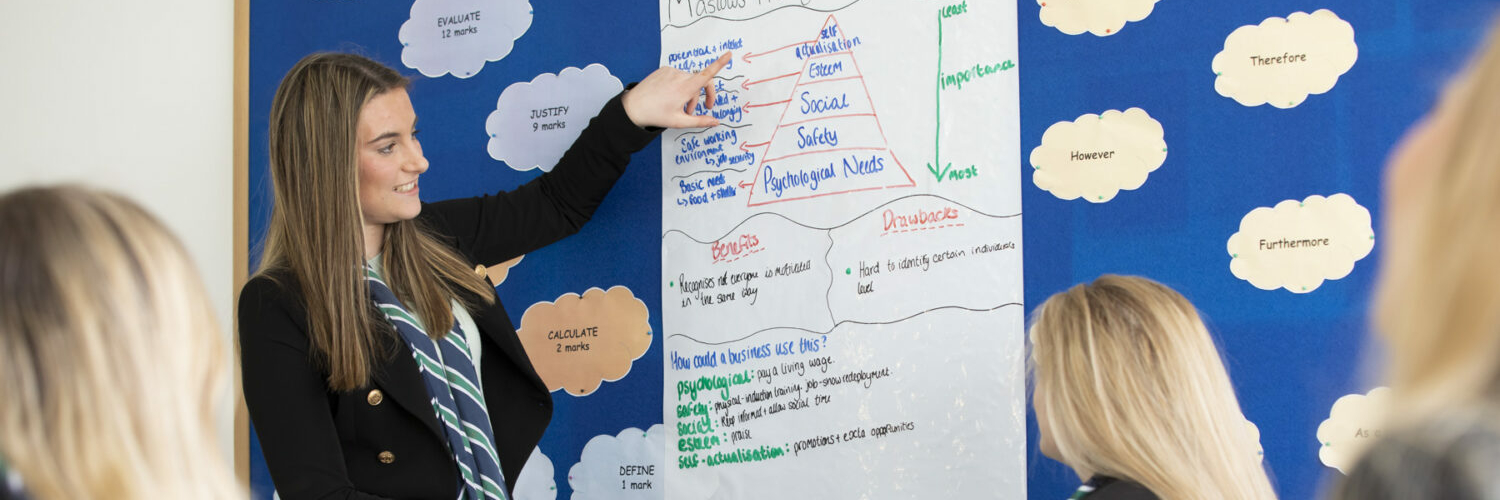 EVALUATE
12 marks
JUSTIFY
9 marks
CALCULATE
2 marks
DEFINE
1 mark
potential + interest
self
actualisation
Esteem
Social
Safety
Psychological Needs
belonging
Safe working
environment
↳ job security
Basic needs
↳ food + shelter
Least
importance
Most
Benefits
• Recognises not everyone is motivated
in the same way
Drawbacks
• Hard to identify certain individuals
level
How could a business use this?
psychological: pay a living wage.
safety: physical-induction training, job-show redeployment.
society: Keep informed + allow social time
esteem: praise
self-actualisation: promotions + extra opportunities
Therefore
However
Furthermore
As